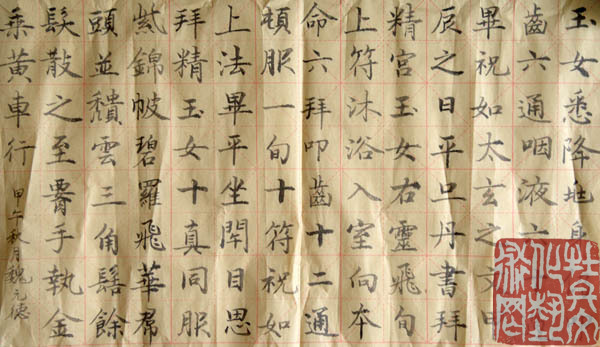 玉女悉降兆身
齒六通咽液六
畢祝如太玄之文甲
辰之日平旦丹書拜
精宮玉女右靈飛旬
上符沐浴入室向本
命六拜叩齒十二通
頓服一旬十符祝如
上法畢平坐閉目思
拜精玉女十真同服
紫錦帔碧羅飛華帬
頭並頹雲三角髻餘
髮散之至臀手執金
乘黃車行
甲午秋月魏元德